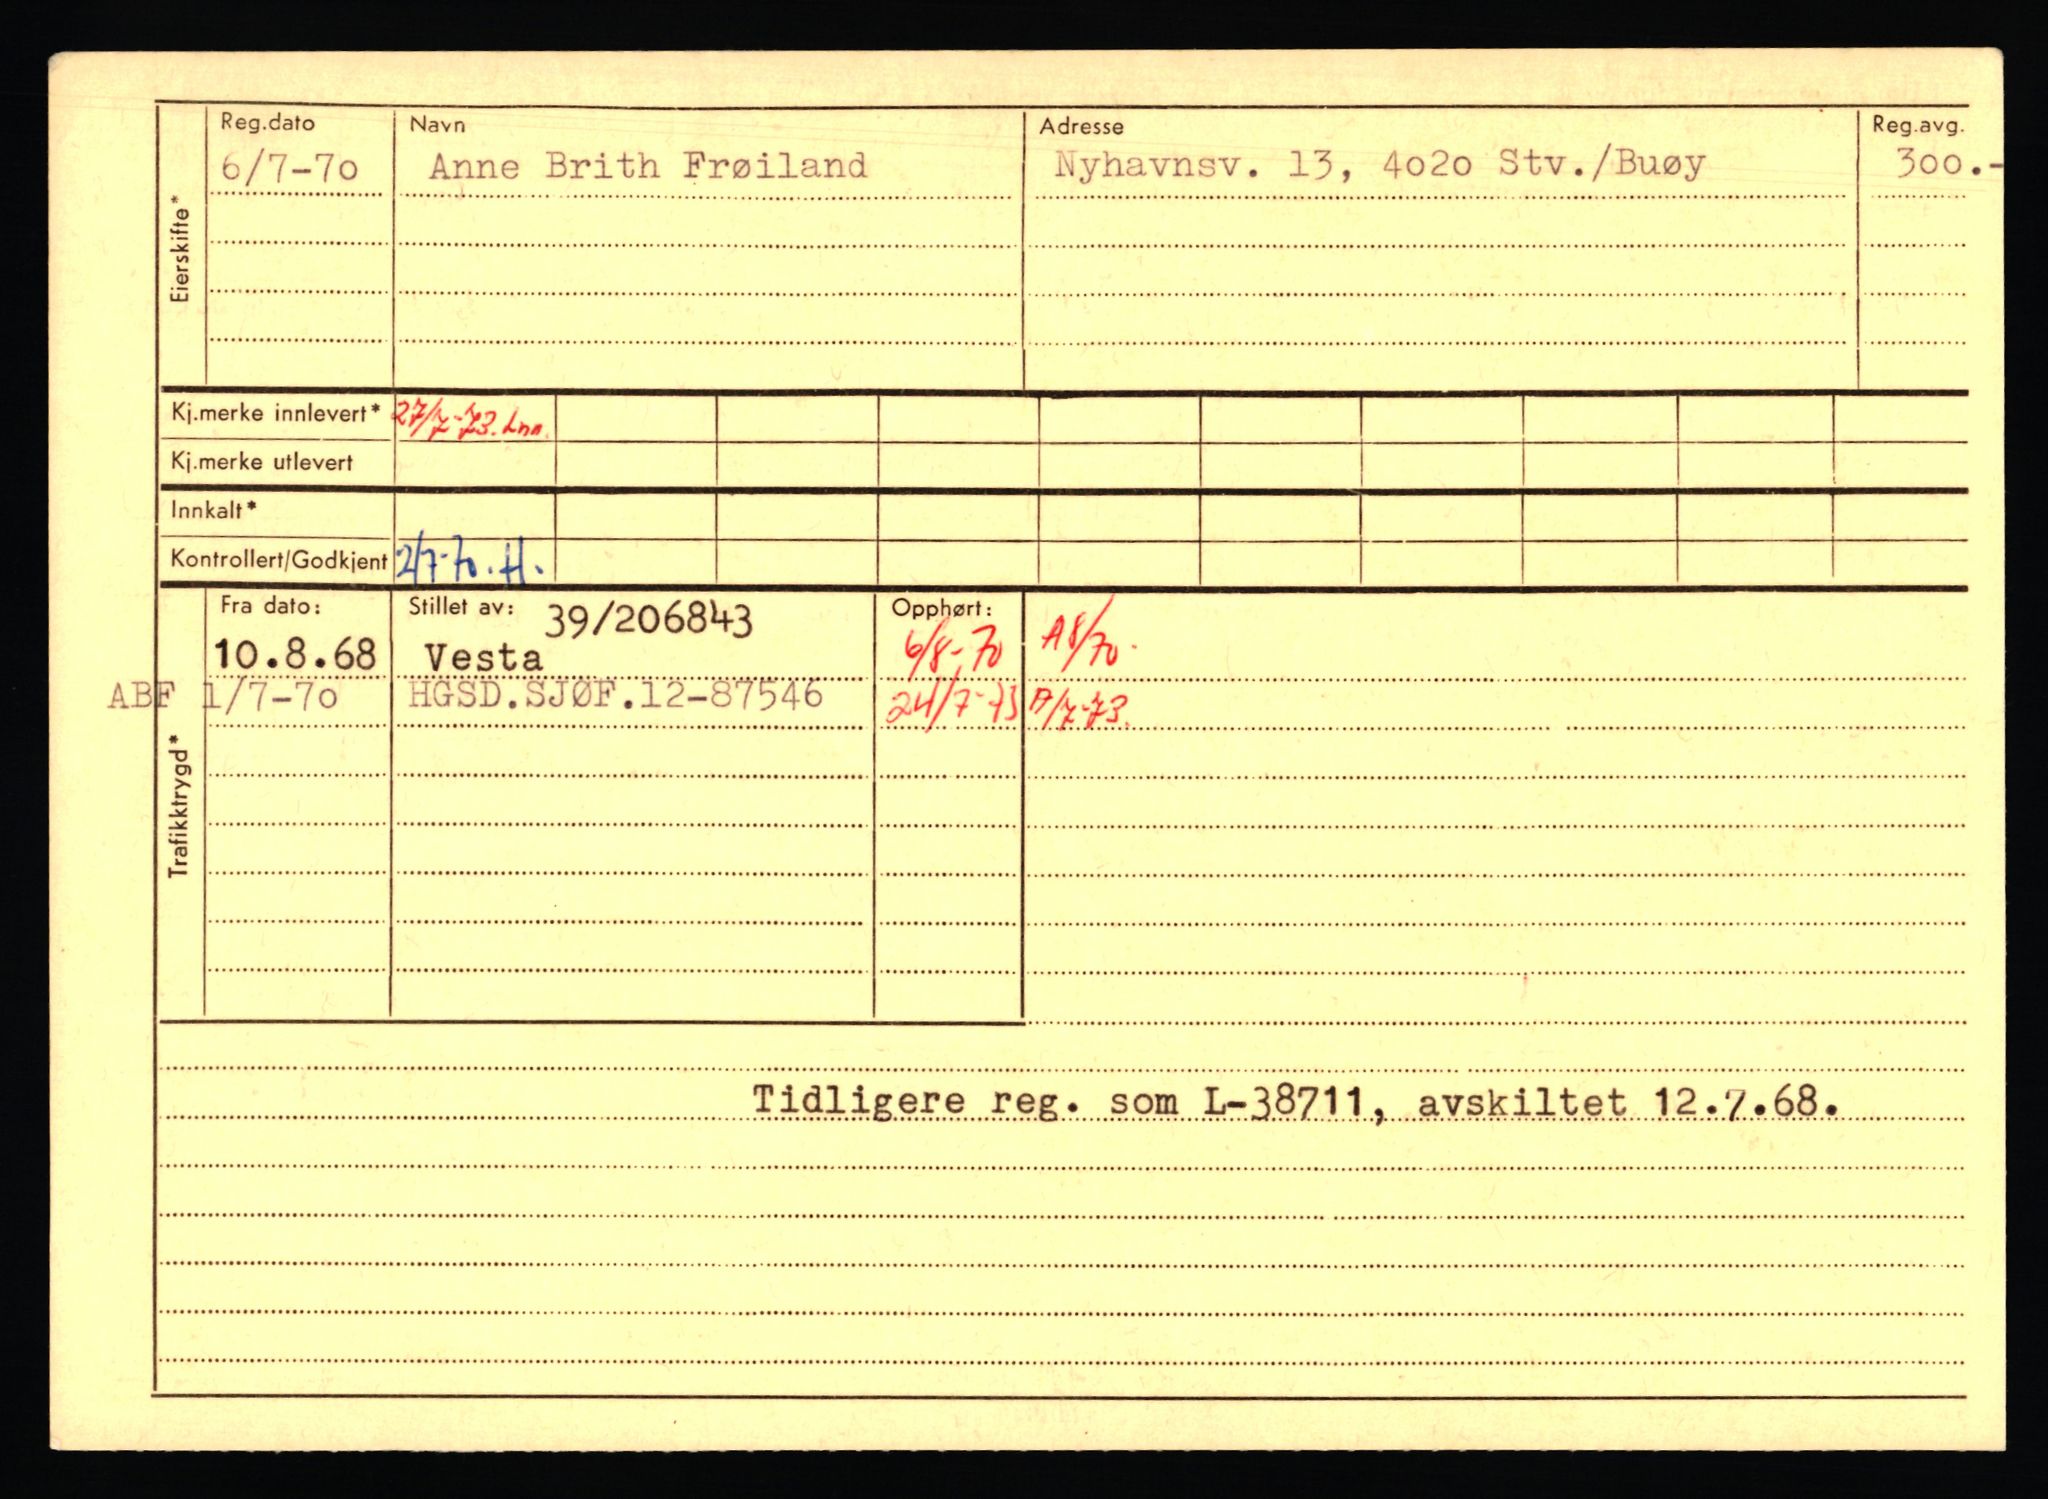 Reg.dato Navn Adresse Reg.avg.
6/7-70 Anne Brith Frøiland Nyhavnsv. 13, 4020 Stv./Buøy 300.-
Eierskifte*
Kj.merke innlevert* 27/7-73.
Kj.merke utlevert
Innkalt*
Kontrollert/Godkjent 2/7-70. H.
Fra dato: Stillet av: 39/206843 Opphørt:
10.8.68 Vesta 6/8-70 A8/70.
ABF 1/7-70 HGSD.SJØF.12-87546 24/7-73 /7-73.
Trafikktrygd*
Tidligere reg. som L-38711, avskiltet 12.7.68.